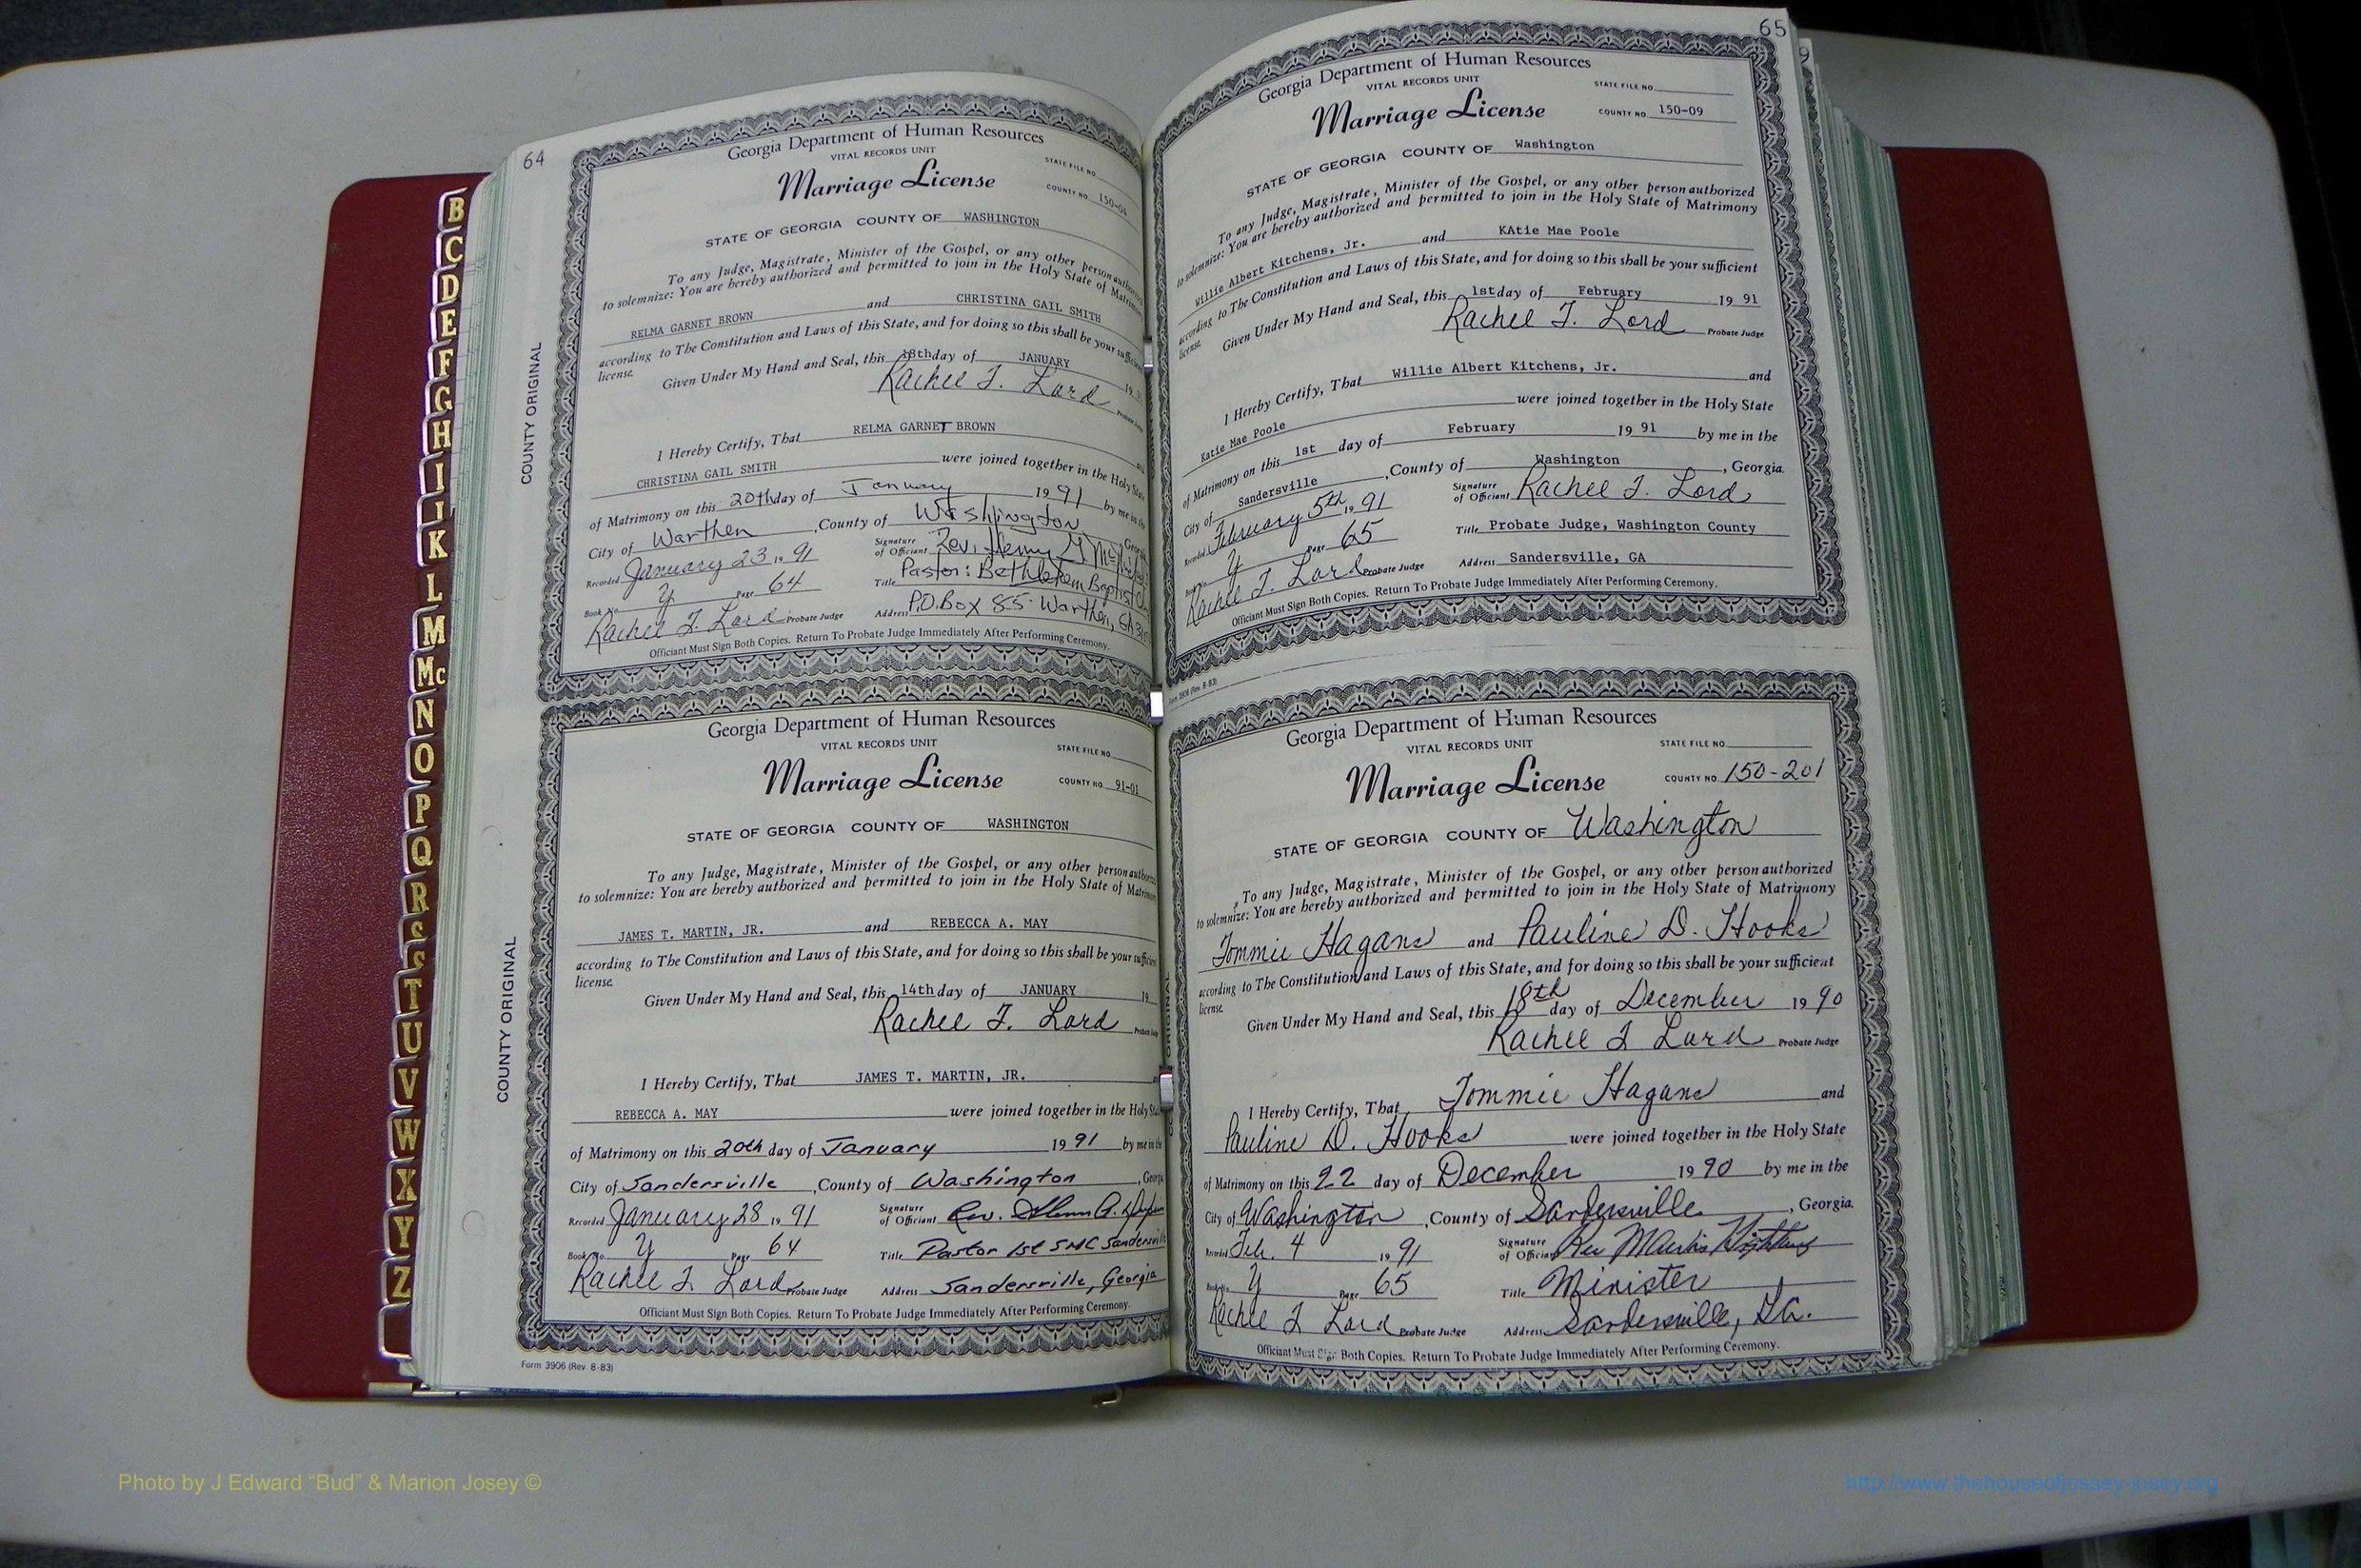 64
Georgia Department of Human Resources
VITAL RECORDS UNIT
STATE FILE NO.
Marriage License
COUNTY NO. 150-04
STATE OF GEORGIA COUNTY OF WASHINGTON
To any Judge, Magistrate, Minister of the Gospel, or any other person
to solemnize: You are hereby authorized and permitted to join in the Holy State of
RELMA GARNET BROWN and CHRISTINA GAIL SMITH
according to The Constitution and Laws of this State, and for doing so this shall be your
license.
Given Under My Hand and Seal, this 18th day of JANUARY 19
Rachel T. Lord
COUNTY ORIGINAL
I Hereby Certify, That RELMA GARNET BROWN
CHRISTINA GAIL SMITH were joined together in the Holy
of Matrimony on this 20th day of January 19 91 by me in the
City of Warthen, County of Washington
Recorded January 23 19 91 Signature of Officiant Rev. Henry
Book No. Y Page 64 Title Pastor: Bethlehem Baptist
Rachel T. Lord Probate Judge Address P.O. Box 85 Warthen, GA
Officiant Must Sign Both Copies. Return To Probate Judge Immediately After Performing Ceremony.
Georgia Department of Human Resources
VITAL RECORDS UNIT
STATE FILE NO.
Marriage License
COUNTY NO. 91-01
STATE OF GEORGIA COUNTY OF WASHINGTON
To any Judge, Magistrate, Minister of the Gospel, or any other person
to solemnize: You are hereby authorized and permitted to join in the Holy State of
JAMES T. MARTIN, JR. and REBECCA A. MAY
according to The Constitution and Laws of this State, and for doing so this shall be your
license.
Given Under My Hand and Seal, this 14th day of JANUARY 19
Rachel T. Lord
COUNTY ORIGINAL
I Hereby Certify, That JAMES T. MARTIN, JR.
REBECCA A. MAY were joined together in the Holy
of Matrimony on this 20th day of January 19 91 by me in the
City of Sandersville, County of Washington
Recorded January 28 19 91 Signature of Officiant Rev.
Book No. Y Page 64 Title Pastor 1st SMC
Rachel T. Lord Probate Judge Address Sandersville, Georgia
Officiant Must Sign Both Copies. Return To Probate Judge Immediately After Performing Ceremony.
Form 3906 (Rev 8-83)
65
Georgia Department of Human Resources
VITAL RECORDS UNIT
STATE FILE NO.
Marriage License
COUNTY NO. 150-09
STATE OF GEORGIA COUNTY OF Washington
To any Judge, Magistrate, Minister of the Gospel, or any other person authorized
to solemnize: You are hereby authorized and permitted to join in the Holy State of Matrimony
Willie Albert Kitchens, Jr. and KAtie Mae Poole
according to The Constitution and Laws of this State, and for doing so this shall be your sufficient
license.
Given Under My Hand and Seal, this 1st day of February 19 91
Rachel T. Lord Probate Judge
I Hereby Certify, That Willie Albert Kitchens, Jr. and
Katie Mae Poole were joined together in the Holy State
of Matrimony on this 1st day of February 19 91 by me in the
City of Sandersville, County of Washington, Georgia.
Recorded February 5th 19 91 Signature of Officiant Rachel T. Lord
Book No. Y Page 65 Title Probate Judge, Washington County
Rachel T. Lord Probate Judge Address Sandersville, GA
Officiant Must Sign Both Copies. Return To Probate Judge Immediately After Performing Ceremony.
Form 3906 (Rev 8-83)
Georgia Department of Human Resources
VITAL RECORDS UNIT
STATE FILE NO.
Marriage License
COUNTY NO. 150-201
STATE OF GEORGIA COUNTY OF Washington
To any Judge, Magistrate, Minister of the Gospel, or any other person authorized
to solemnize: You are hereby authorized and permitted to join in the Holy State of Matrimony
Tommie Hagans and Pauline D. Hooks
according to The Constitution and Laws of this State, and for doing so this shall be your sufficient
license.
Given Under My Hand and Seal, this 18th day of December 19 90
Rachel T Lord Probate Judge
I Hereby Certify, That Tommie Hagans and
Pauline D. Hooks were joined together in the Holy State
of Matrimony on this 22 day of December 19 90 by me in the
City of Washington, County of Sandersville, Georgia.
Recorded Feb. 4 19 91 Signature of Officiant Rev
Book No. Y Page 65 Title Minister
Rachel T Lord Probate Judge Address Sandersville, Ga.
Officiant Must Sign Both Copies. Return To Probate Judge Immediately After Performing Ceremony.
B
C
D
E
F
G
H
I
J
K
L
M
Mc
N
O
P
Q
R
S
S
T
U
V
W
X
Y
Z
Photo by J Edward “Bud” & Marion Josey ©
http://www.thehouseofjossey-josey.org